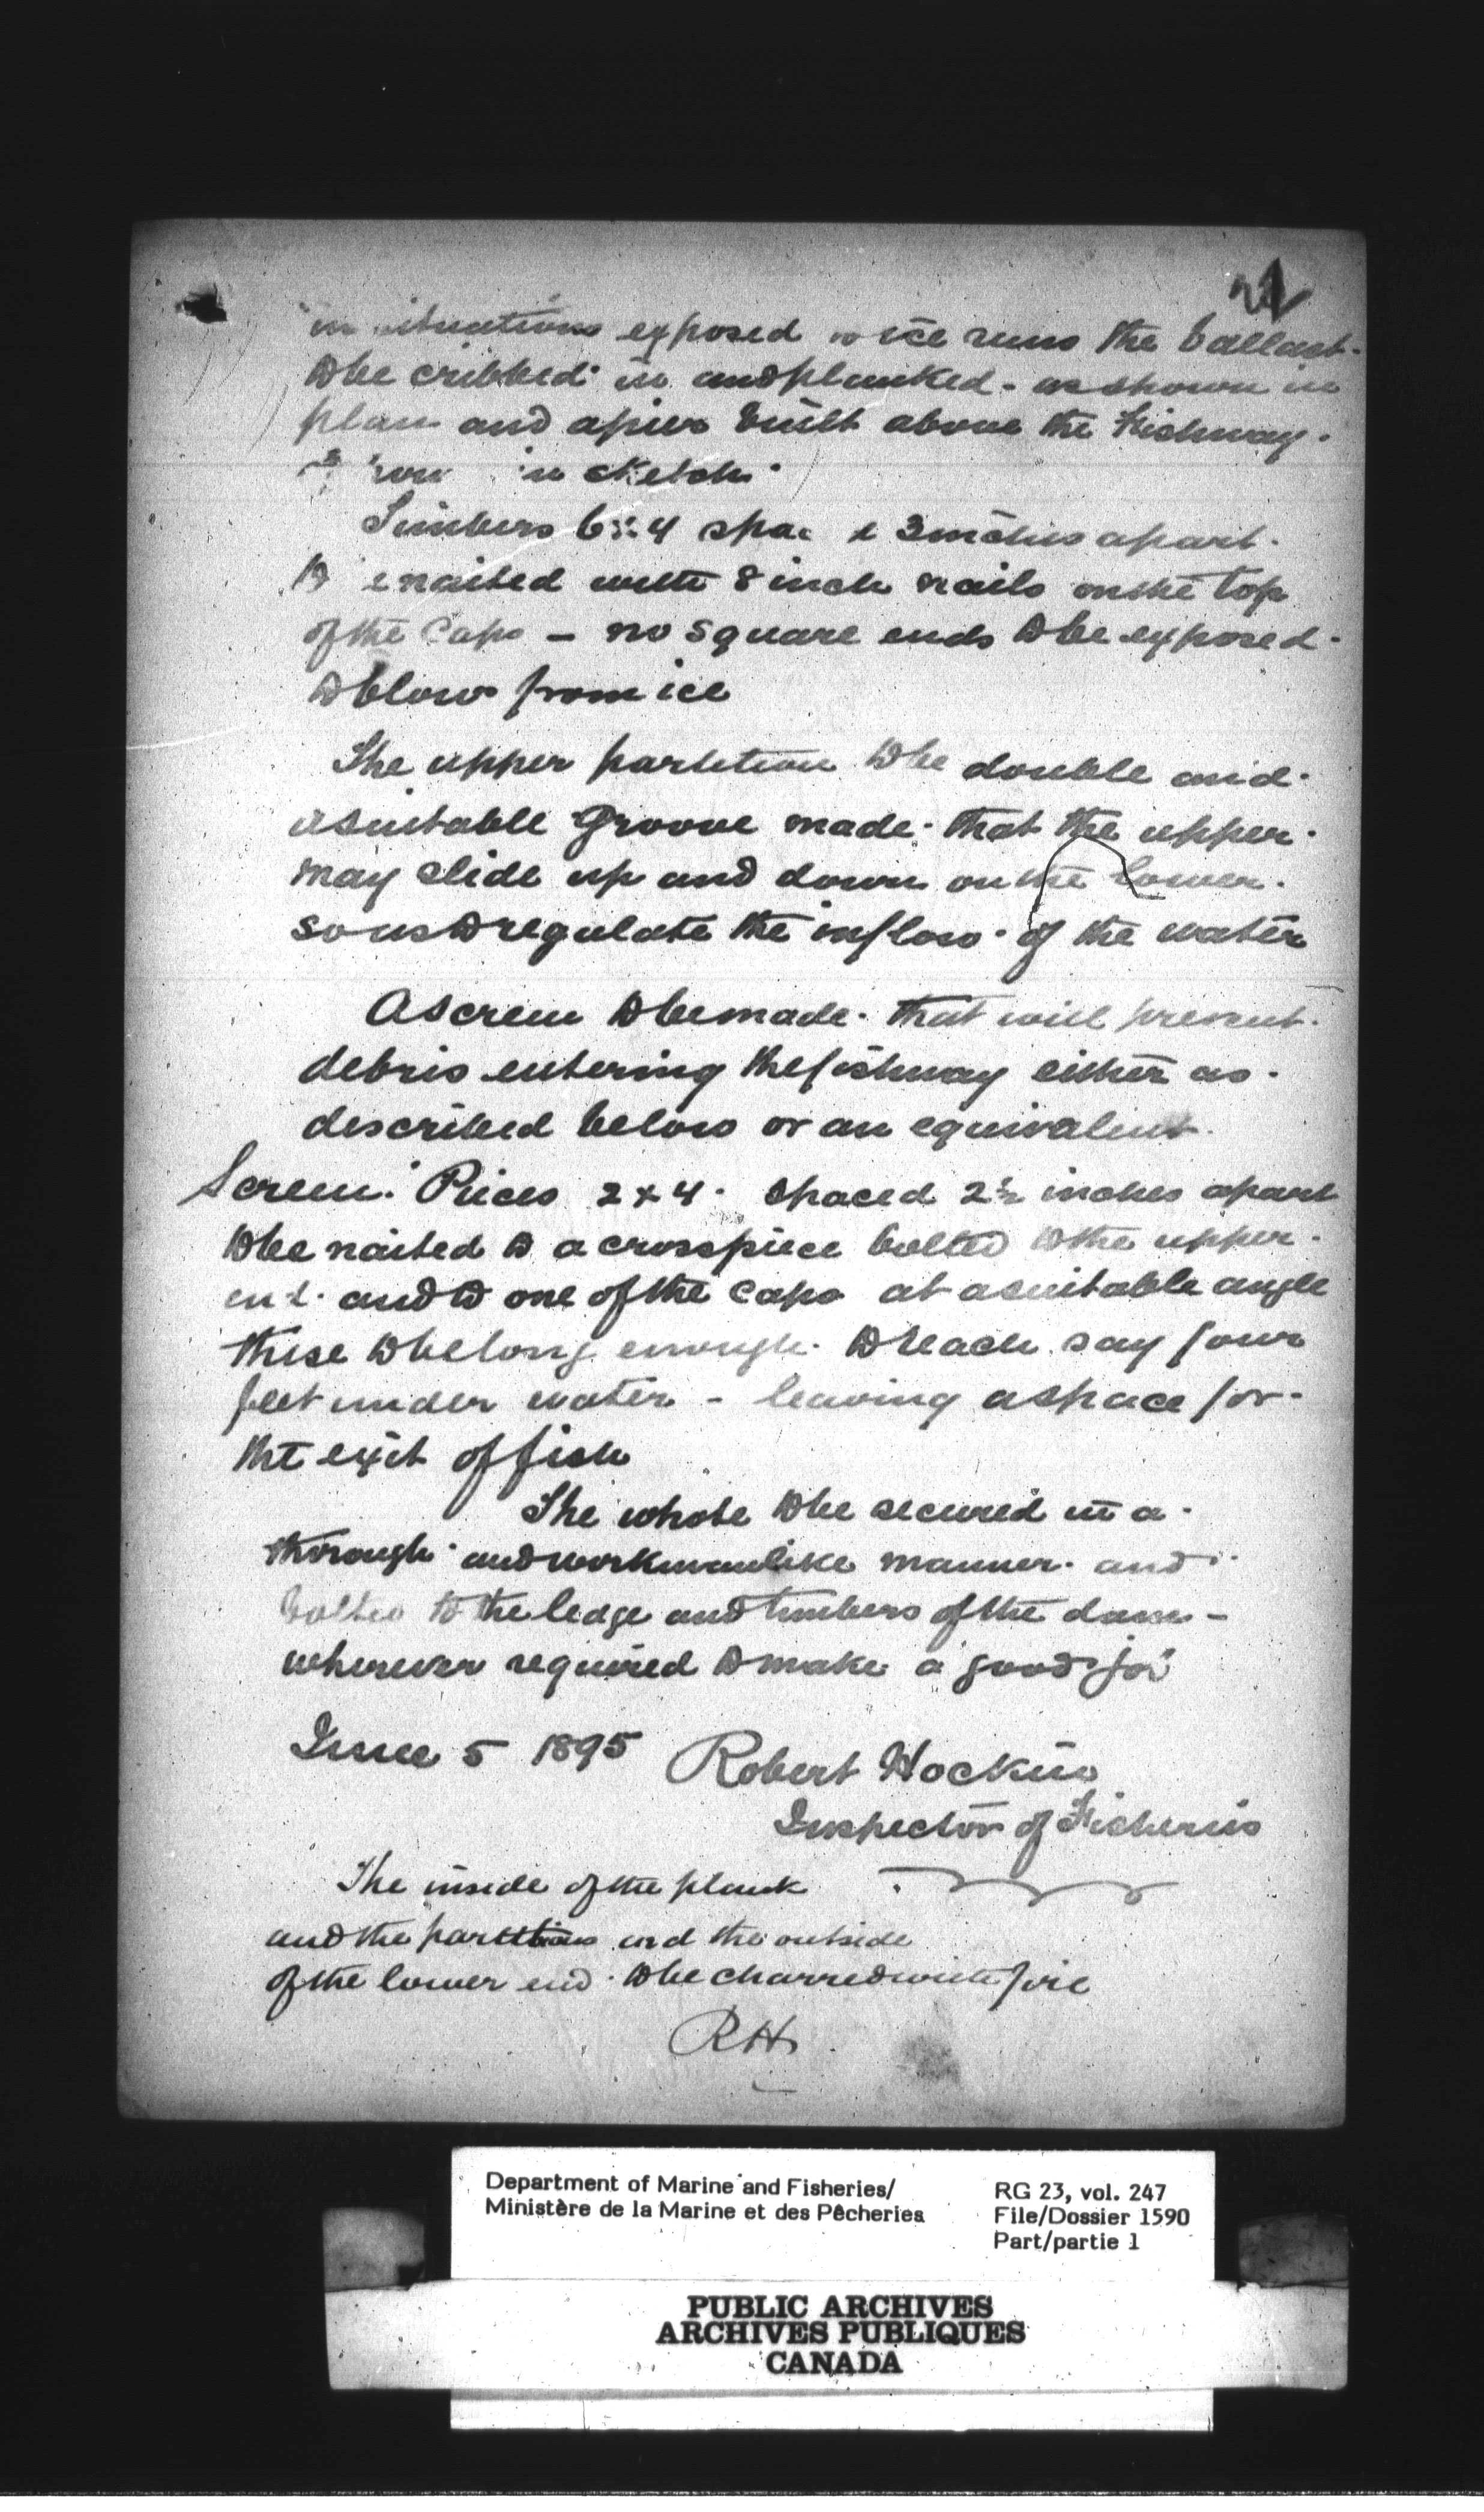 in situations exposed to ice runs the ballast
to be cribbed in and planked - as shown in
plan and a pier built above the Fishway.
in sketch
Timbers 6x4 spaced 3 inches apart.
to be nailed with 8 inch nails on the top
of the Caps - no square ends to be exposed
to blows from ice
The upper partition to be double and
a suitable Groove made that the upper
may slide up and down on the lower.
so as to regulate the inflow of the water
A screen to be made that will prevent
debris entering the fishway either as
described below or an equivalent.
Screen. Pieces 2 x 4. spaced 2½ inches apart
to be nailed to a crosspiece bolted to the upper
end. and to one of the Caps at a suitable angle
these to be long enough to reach say four
feet under water - leaving a space for
the exit of fish
The whole to be secured in a
thorough and workmanlike manner. and
bolted to the ledge and timbers of the dam -
wherever required to make a good job
June 5 1895 Robert Hockin
Inspector of Fisheries
The inside of the plank
and the partitions and the outside
of the lower end to be charred with fire
RH.
Department of Marine and Fisheries/
Ministère de la Marine et des Pêcheries
RG 23, vol. 247
File/Dossier 1590
Part/partie 1
PUBLIC ARCHIVES
ARCHIVES PUBLIQUES
CANADA